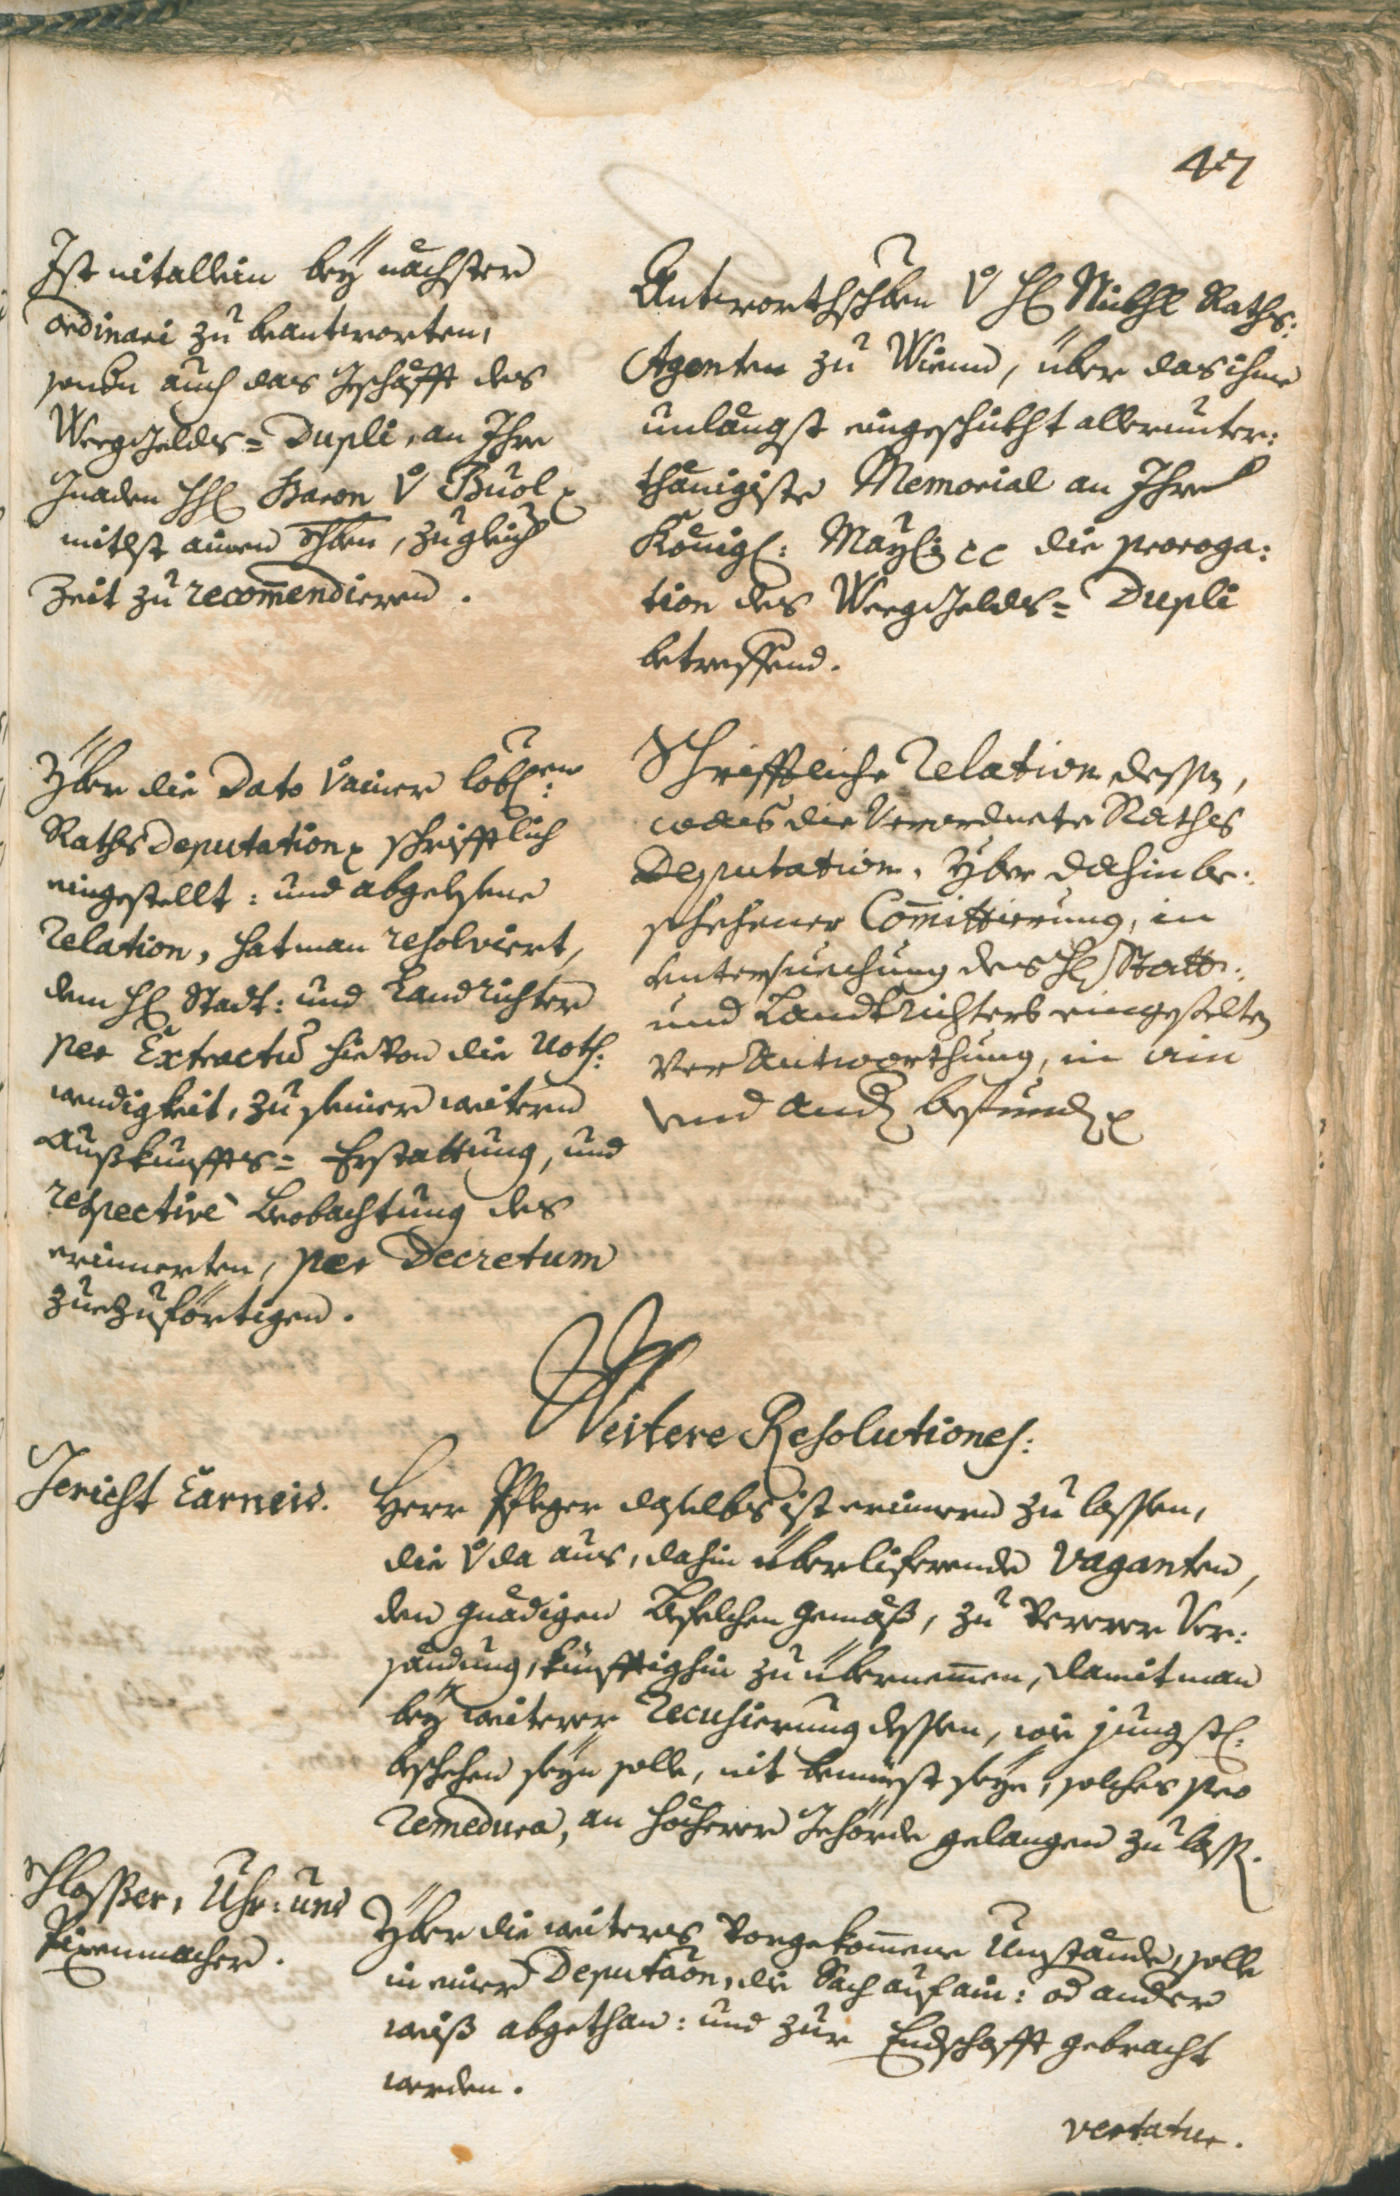 47
Ist nit allein bey nächster
ordinari zu beantworten,
sondn auch das Geschäfft des
Weeg Gelds= Dupli, an Ihro
Gnaden HH Baron v Buol
mitlst aines schbens, zugleich
Zeit zu recom̄endieren.
Antworthschben v H Nickhl Raths:
Agenten zu Wienn, über das ihme
unlängst eingeschikht allerunter:
thänigiste Memorial an Ihro
Königl: Mayl: die proroga:
tion des Weeg Gelds= Dupli
betreffend.
Yber die Dato v ainer löbl:
Raths Deputation schrifftlich
eingestellt: und abgelesene
Relation, hat man resolviert,
dem H Stadt: und Landrichter
per Extractū hievon die Noth:
wendigkeit, zu seiner weitern
Außkunffts= Erstattung, und
respectivè Beobachtung des
erinnerten, per Decretum
zuezuförtigen.
Schrifftliche Relation dessen,
was die Verordnete Raths
Deputation, Yber dahin be:
schehener Com̄ittierung, in
untersuechung des H Statt:
und Landtrichters eingestelten
Verantworthung, in ain
und andn befunden
Weitere Resolutiones:
Gericht Carneid.
Herr Pfleger daselbs ist erinnern zu lassen,
die v da aus, dahin überliferende Vaganten,
den gnädigen Befelchen gemäß, zu Ver:
sändung, künfftighin zu übernem̄en, damit man
bey weiterer Recusierung dessen, wie jüngstl:
beschehen seyn solle, nit bemüest seye, solches pro
remedura, an höcherer Gehörde gelangen zu lassn.
Schlosser, Uhr: und
Pixenmacher.
Yber die weiters vorgekom̄ene Umstände, solle
in einer Deputāon, die Sach auf ain: od andere
weiß abgethan: und zur Endschafft gebracht
werden.
vertatur.